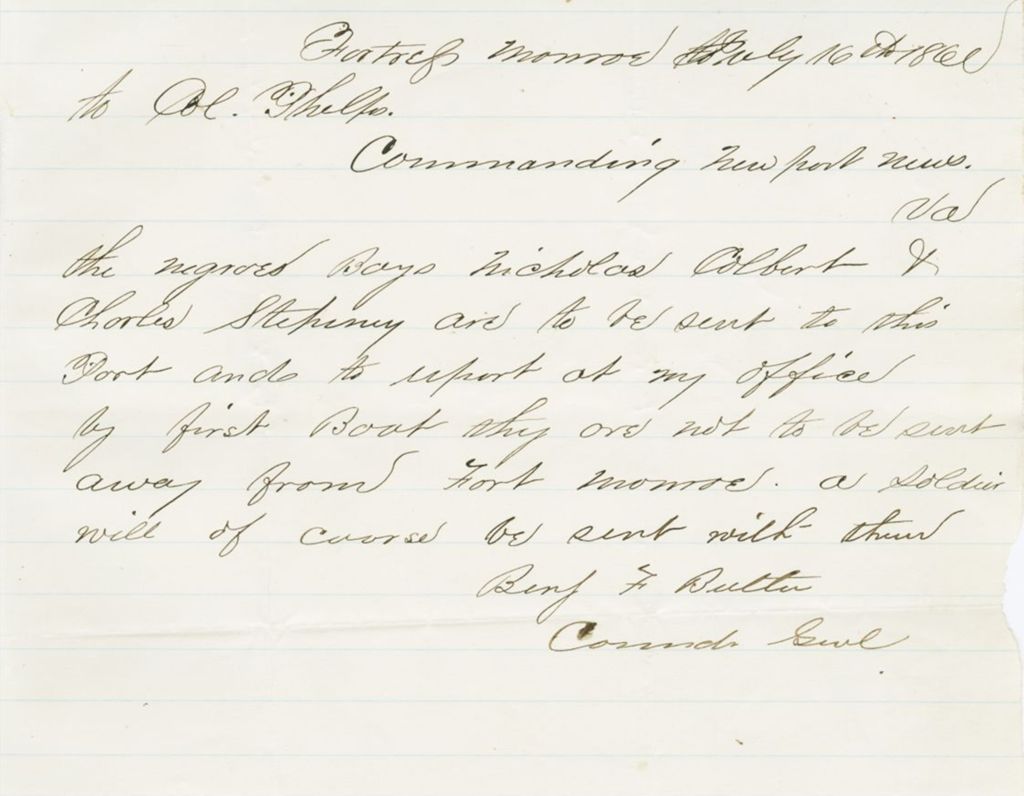 Fortress Monroe July 16th 1861
to Col. Phelps.
Commanding New port News.
Va
the negroes Boys Nicholas Colbert &
Charles Stepiney are to be sent to this
Port and to report at my office
by first Boat they are not to be sent
away from Fort Monroe. a soldier
will of course be sent with them
Benj F Butler
Comnd. Genl